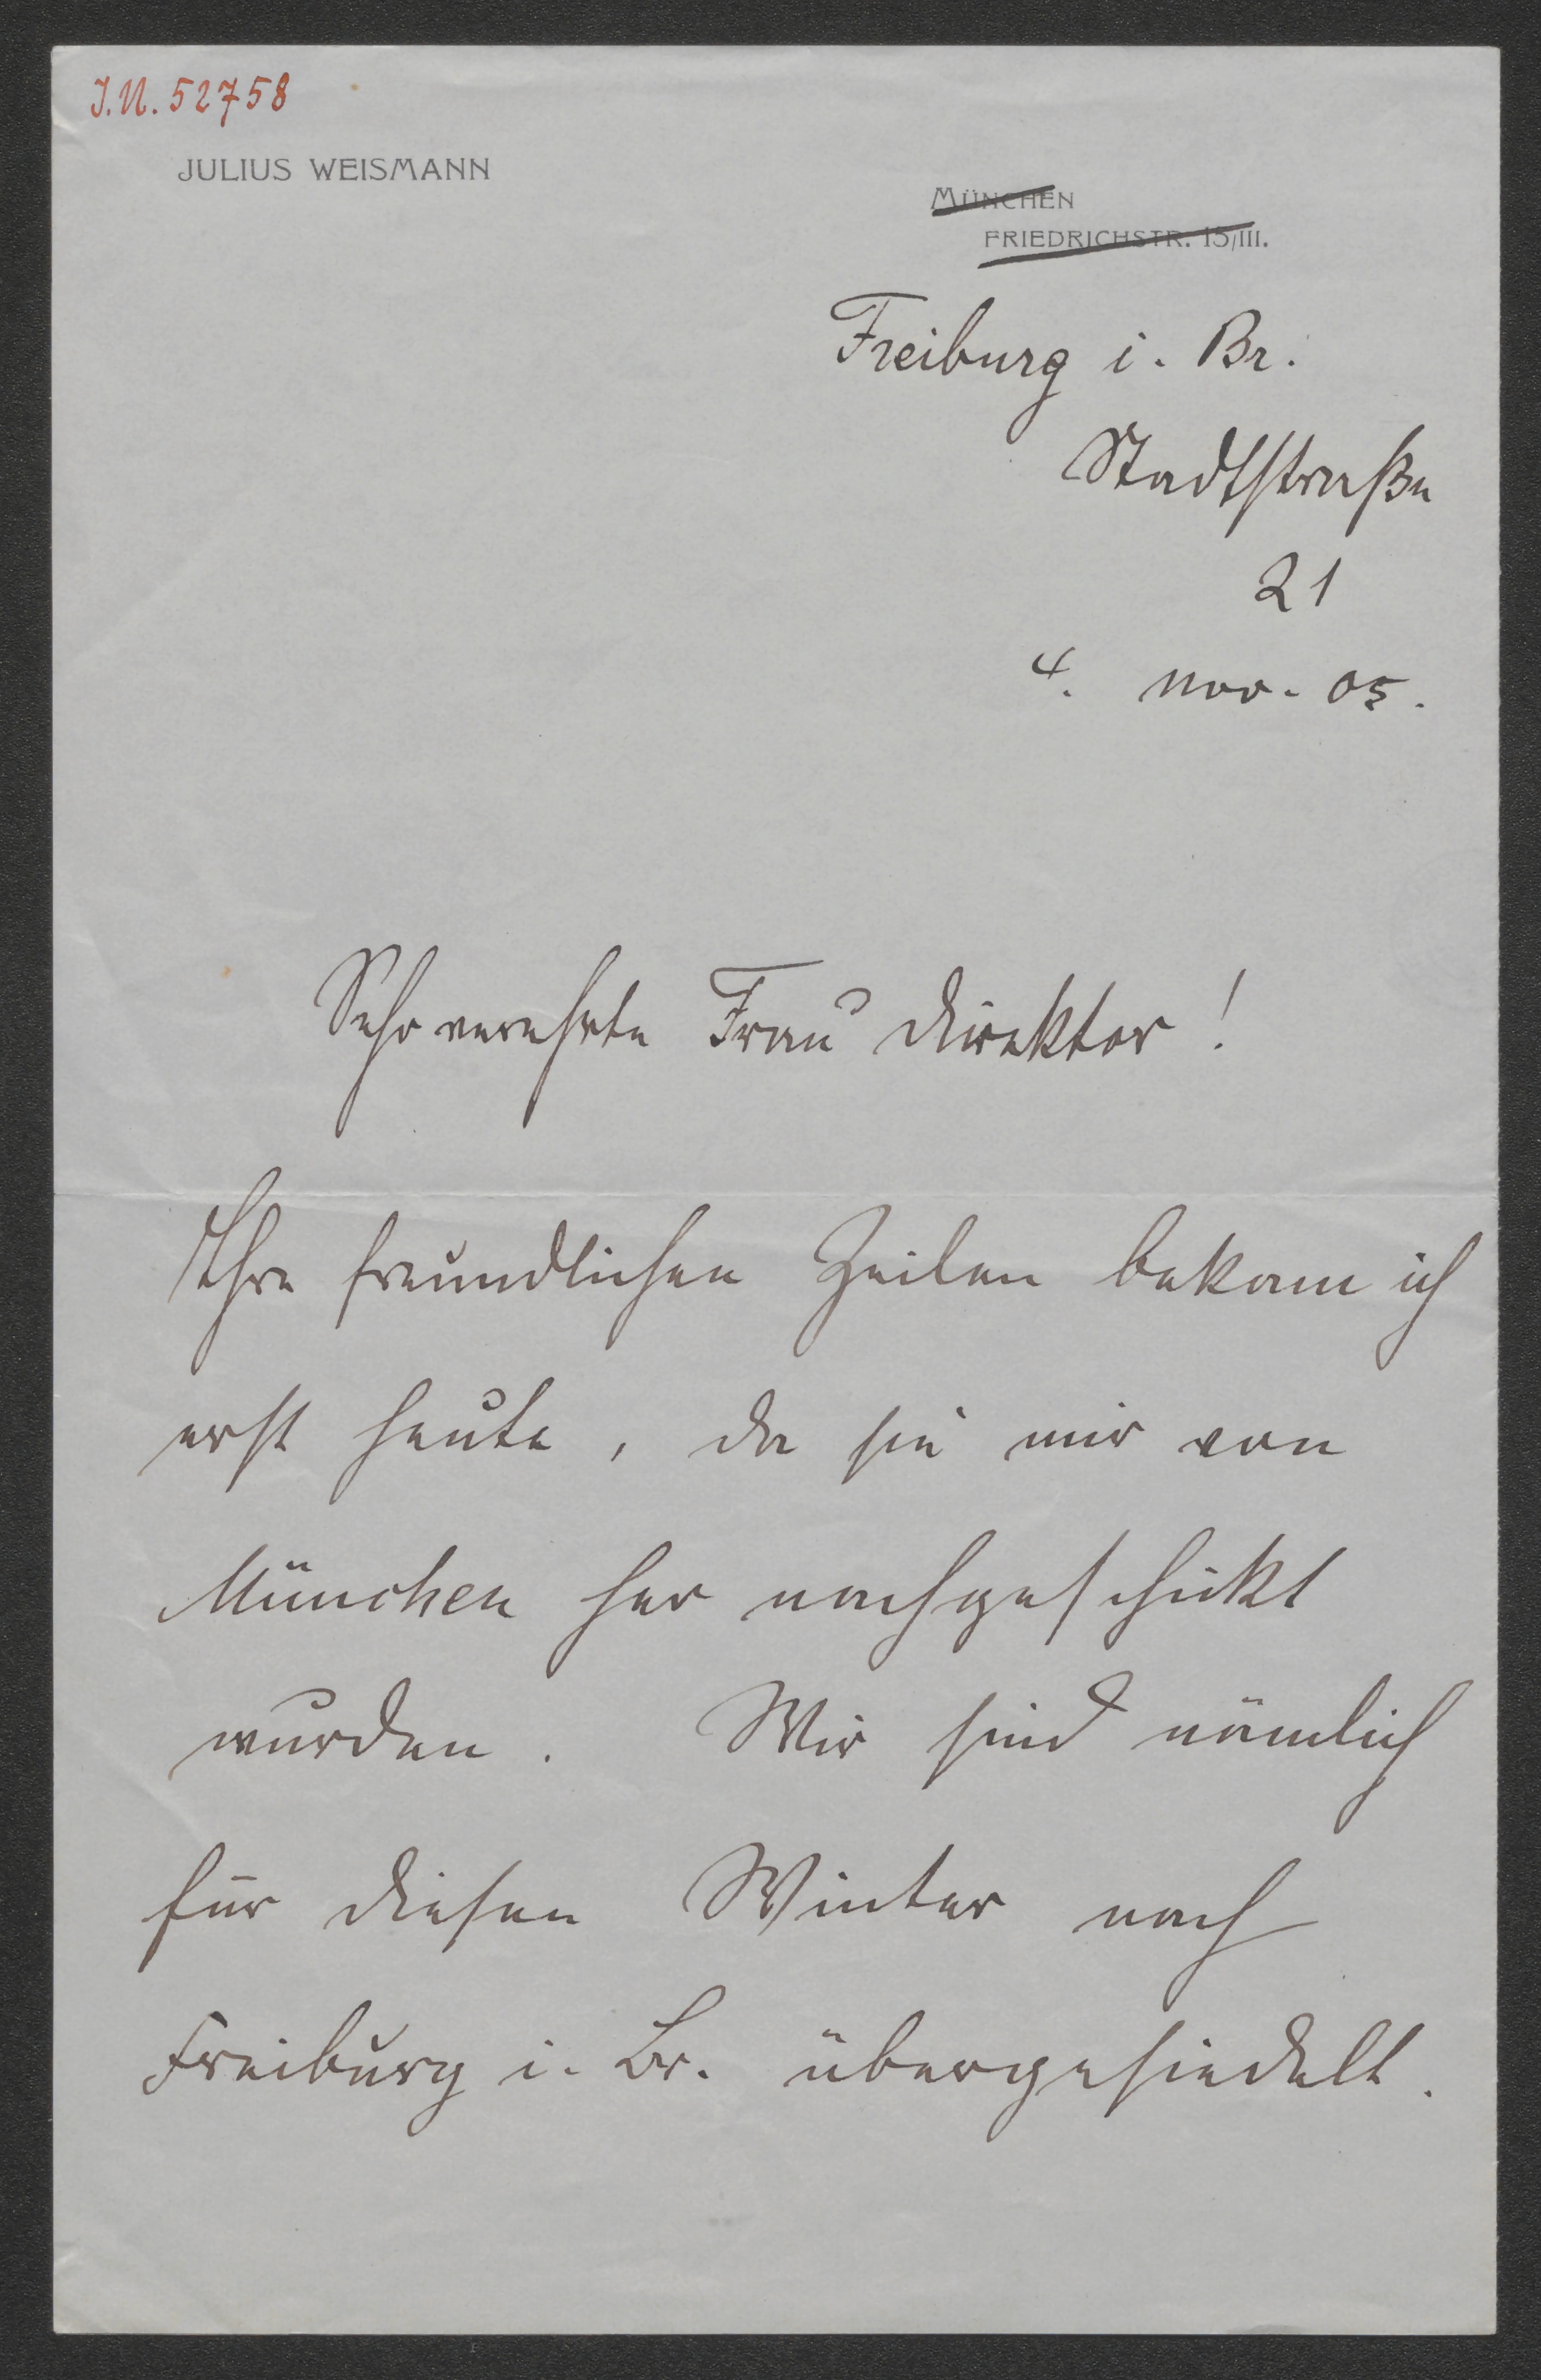 J.N. 52758
JULIUS WEISMANN
MÜNCHEN
FRIEDRICHSTR. 15/III.
Freiburg i. Br.
Stadtstraße
21
4. Nov. 05.
Sehr verehrte Frau Direktor!
Ihre freundlichen Zeilen bekam ich
erst heute, da sie mir von
München her nachgeschickt
wurden. Wir sind nämlich
für diesen Winter nach
Freiburg i. Br. übergesiedelt.